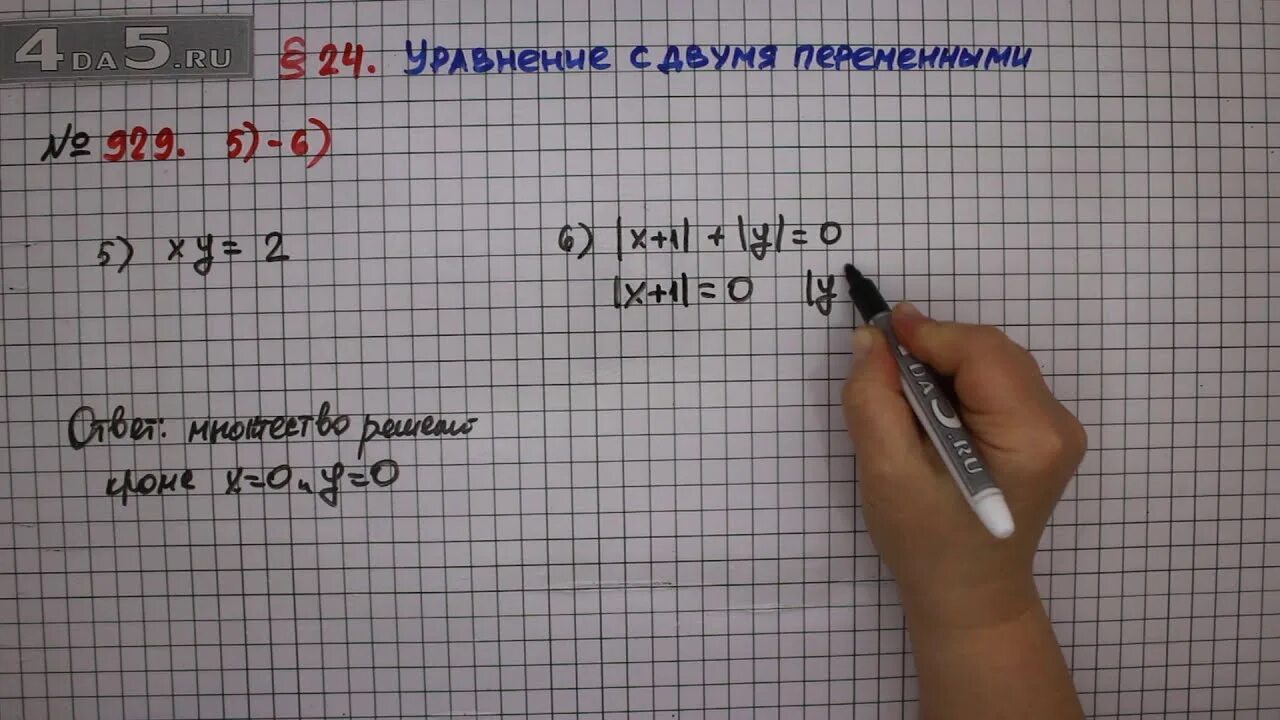 4DA5.RU
§ 24. Уравнение с двумя переменными
№ 929. 5)-6)
5) xy = 2
Ответ: множество решений
кроме x=0 и y=0
6) |x+1| + |y| = 0
|x+1| = 0 |y
DA5.RU